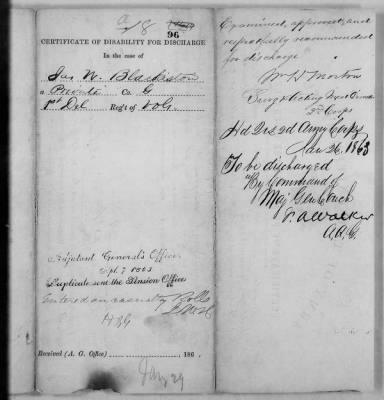 96
CERTIFICATE OF DISABILITY FOR DISCHARGE
In the case of
Jas W. Blackiston
a Private Co. G
1st Del Regt of Vols
Adjutant General's Office
Sept 7 1863
Duplicate sent the Pension Office
Entered on casualty Rolls
Received (A. G. Office) 186 .
Jan 29
Examined, approved, and
respectfully recommended
for discharge
Surg & Acting Med
2d Corps
Hd Qrs 2d Army Corps
Jan 26. 1863
To be discharged
By Command of
Maj Gen Couch
F. A. Walker
A.A.G.